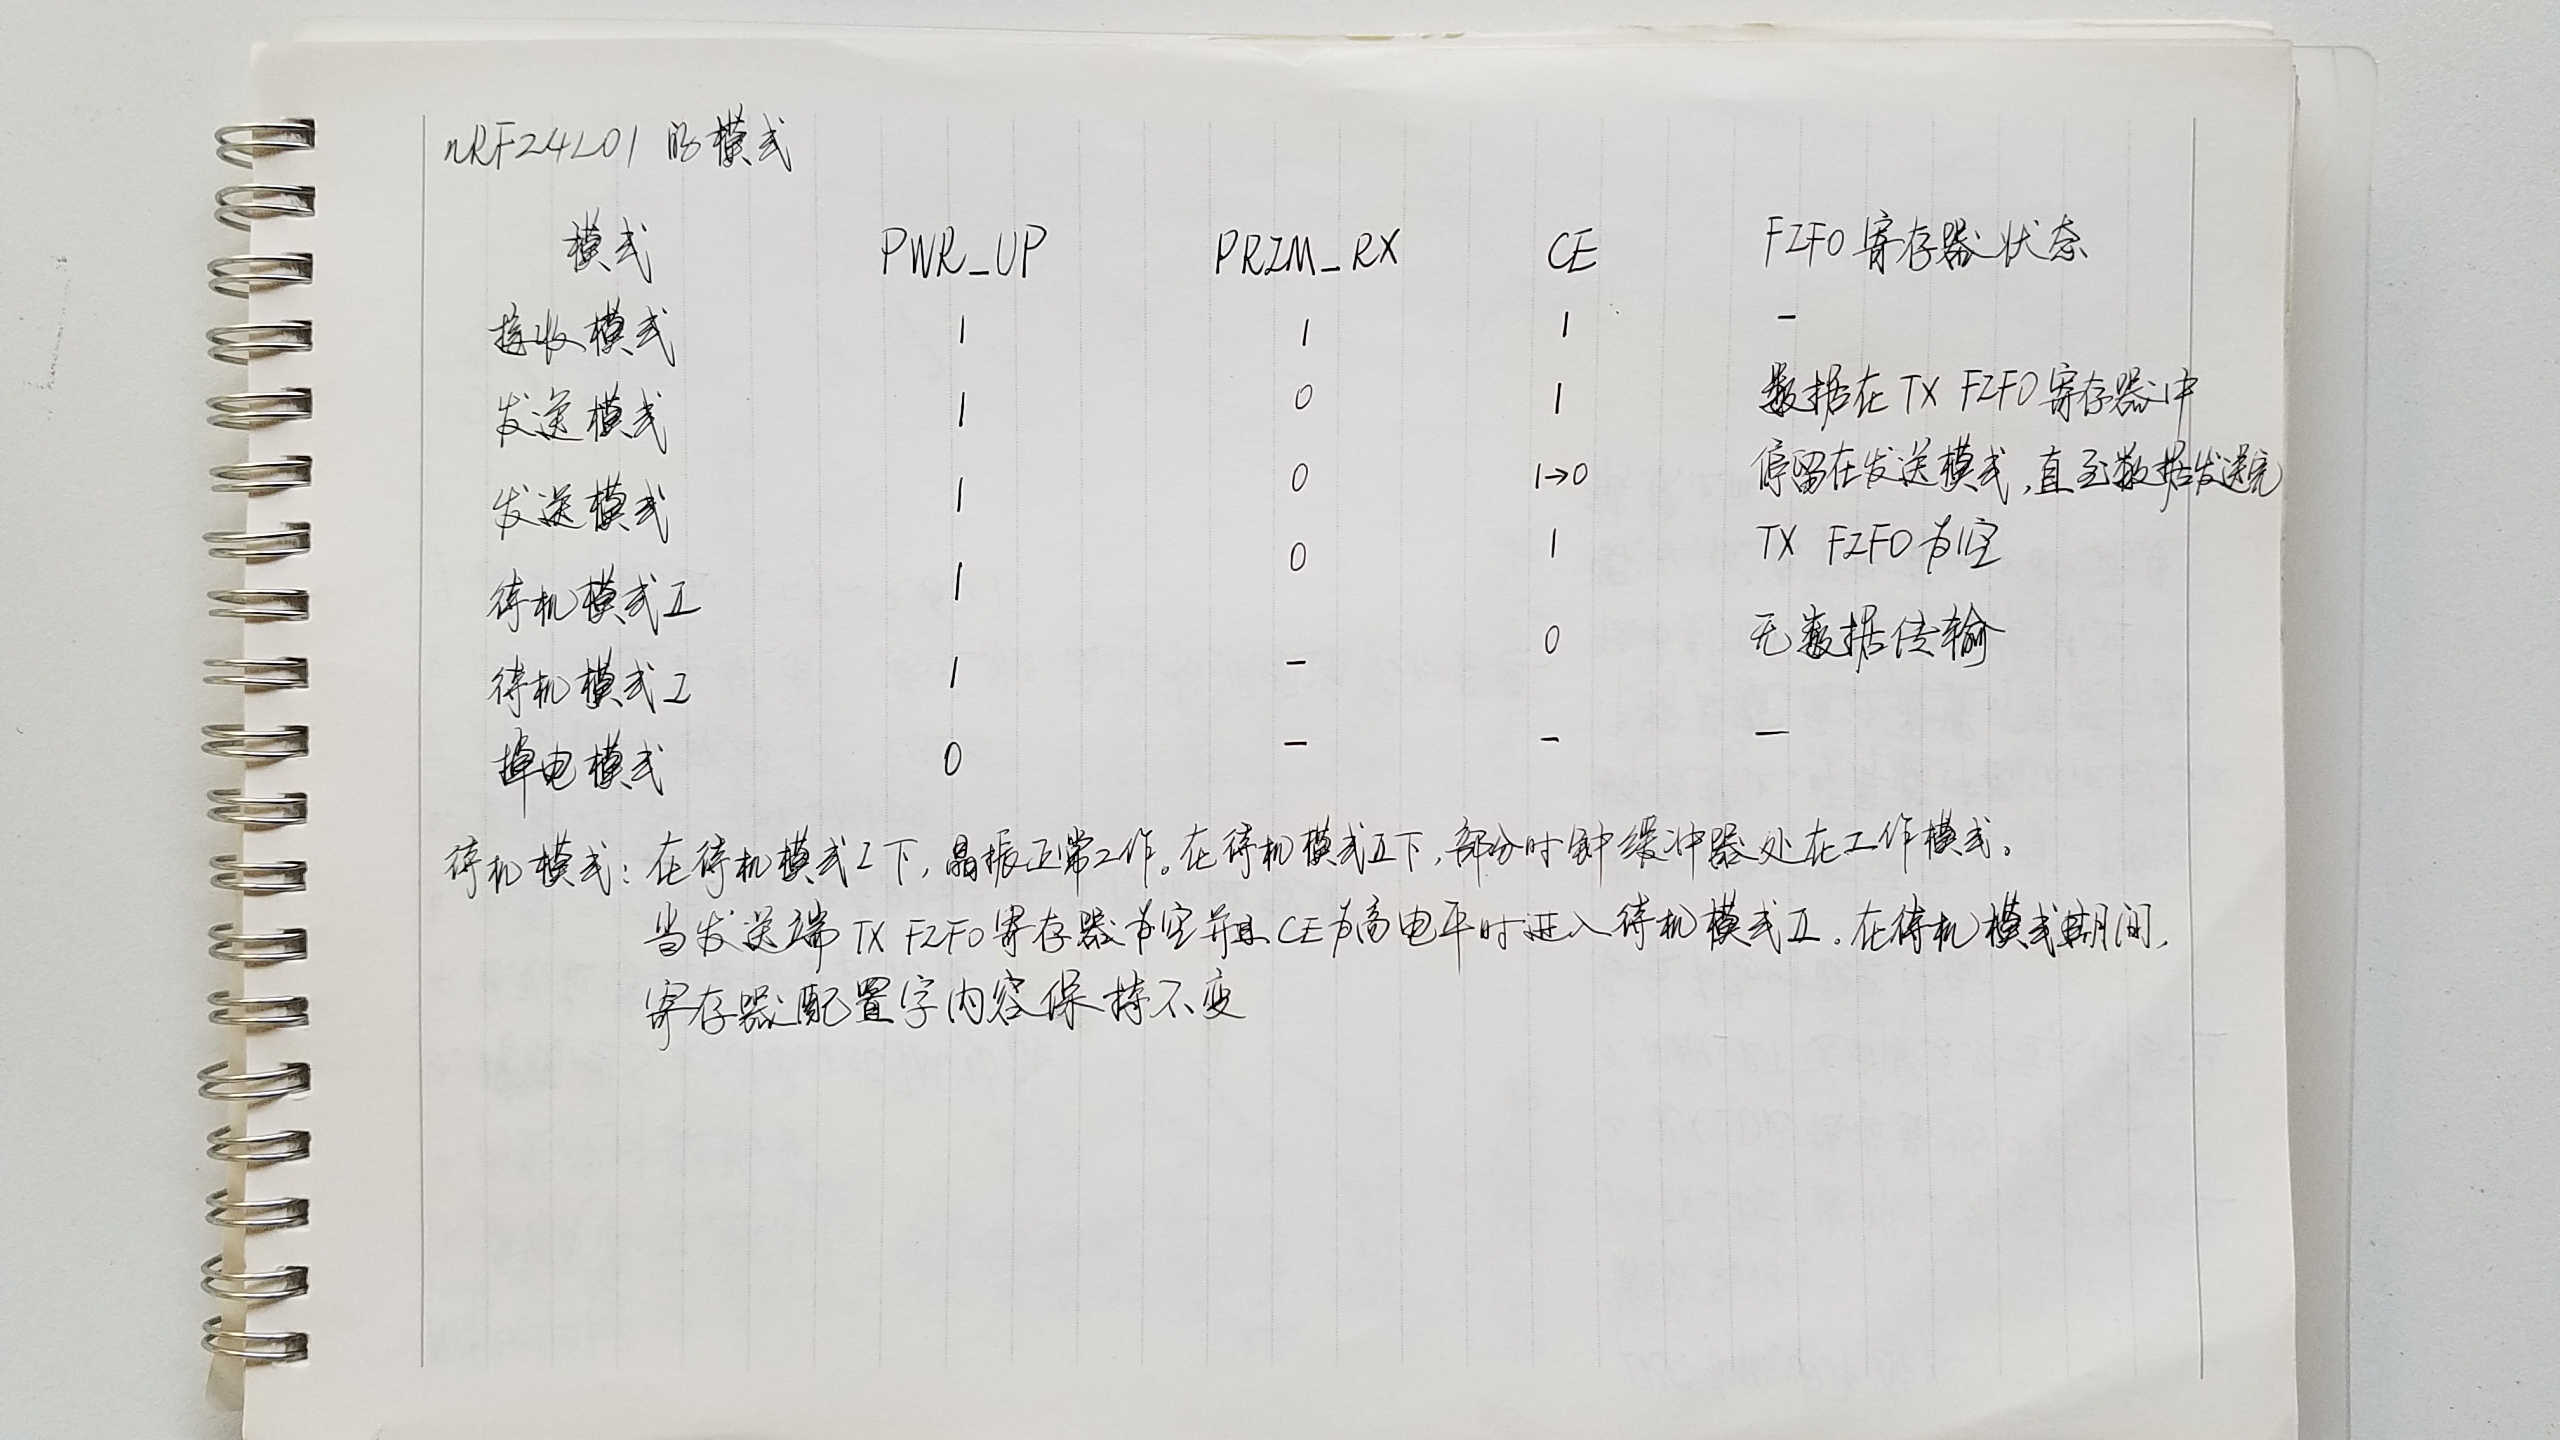 nRF24L01 的模式
模式 PWR_UP PRIM_RX CE FIFO寄存器状态
接收模式 1 1 1 -
发送模式 1 0 1 数据在 TX FIFO 寄存器中
发送模式 1 0 1→0 停留在发送模式,直至数据发送完
待机模式Ⅱ 1 0 1 TX FIFO为空
待机模式I 1 - 0 无数据传输
掉电模式 0 - - -
待机模式:在待机模式I下,晶振正常工作。在待机模式Ⅱ下,部分时钟缓冲器处在工作模式。
当发送端 TX FIFO寄存器为空并且 CE为高电平时进入待机模式Ⅱ。在待机模式期间,
寄存器配置字内容保持不变